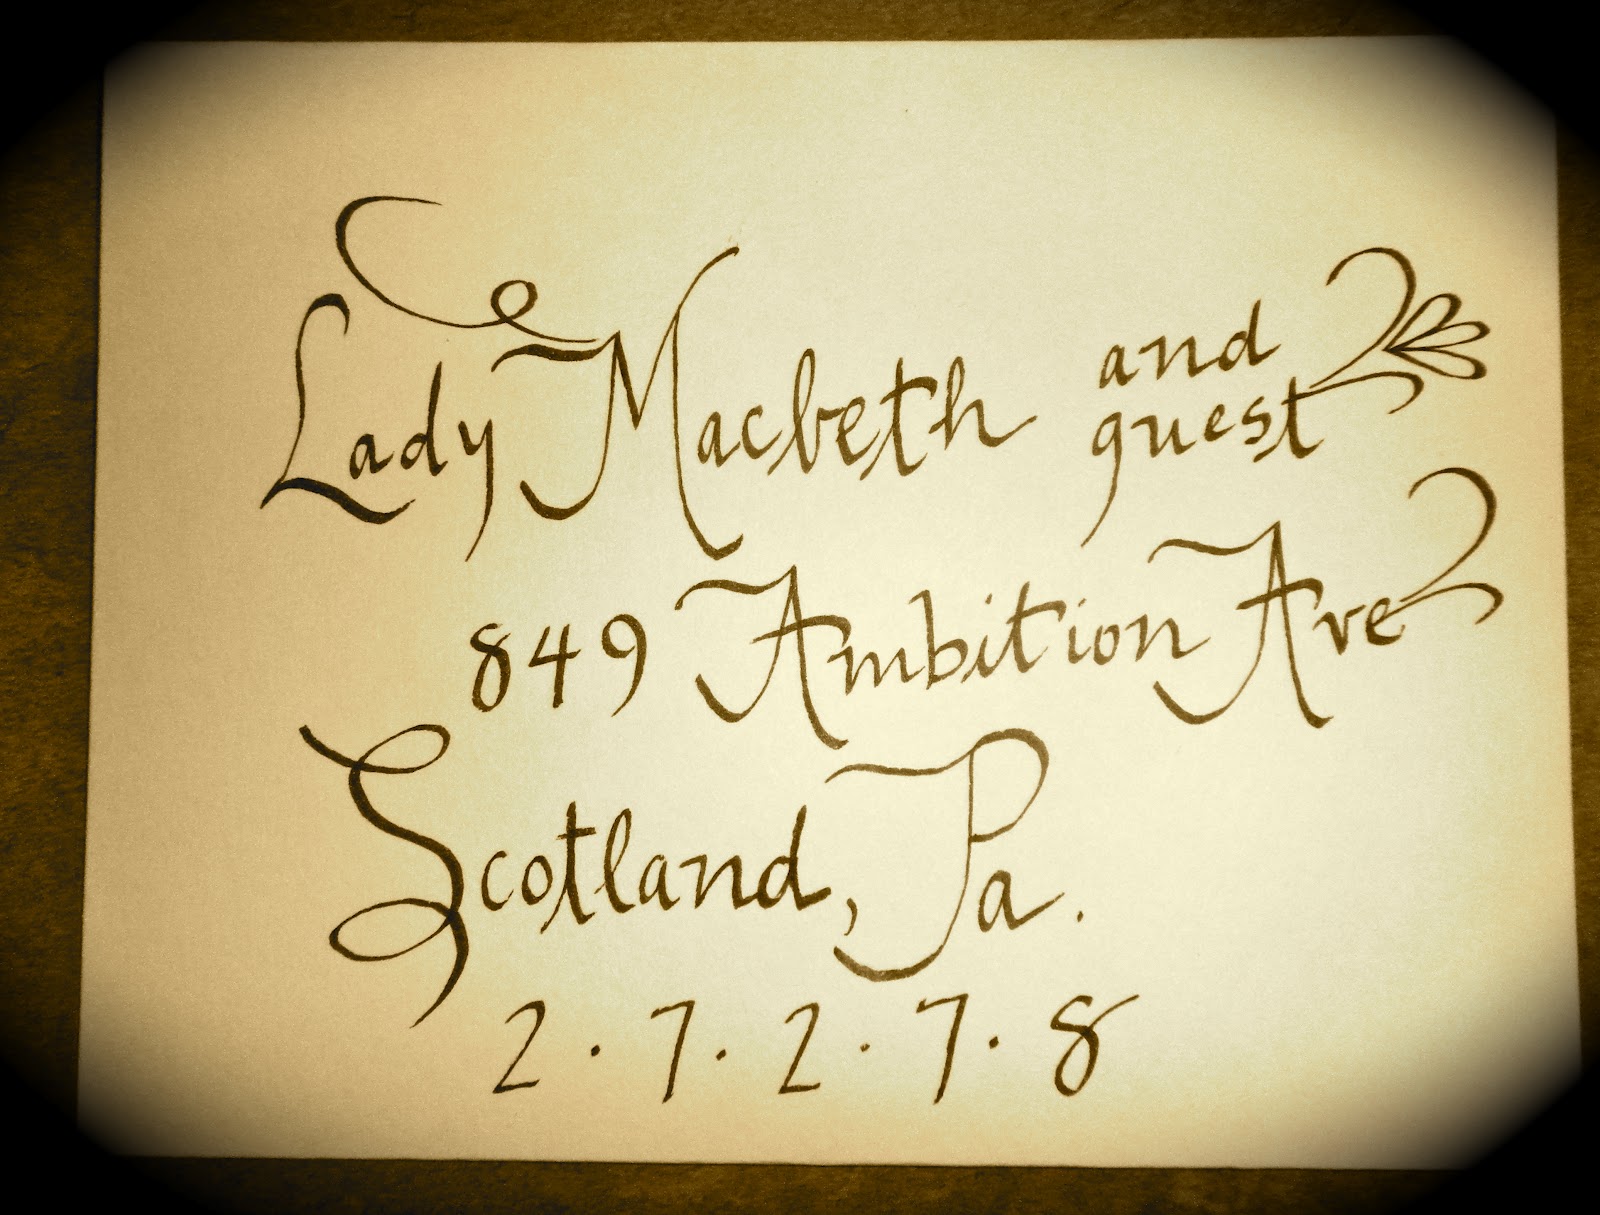 Lady Macbeth and guest
849 Ambition Ave
Scotland, Pa.
2.7.2.7.8